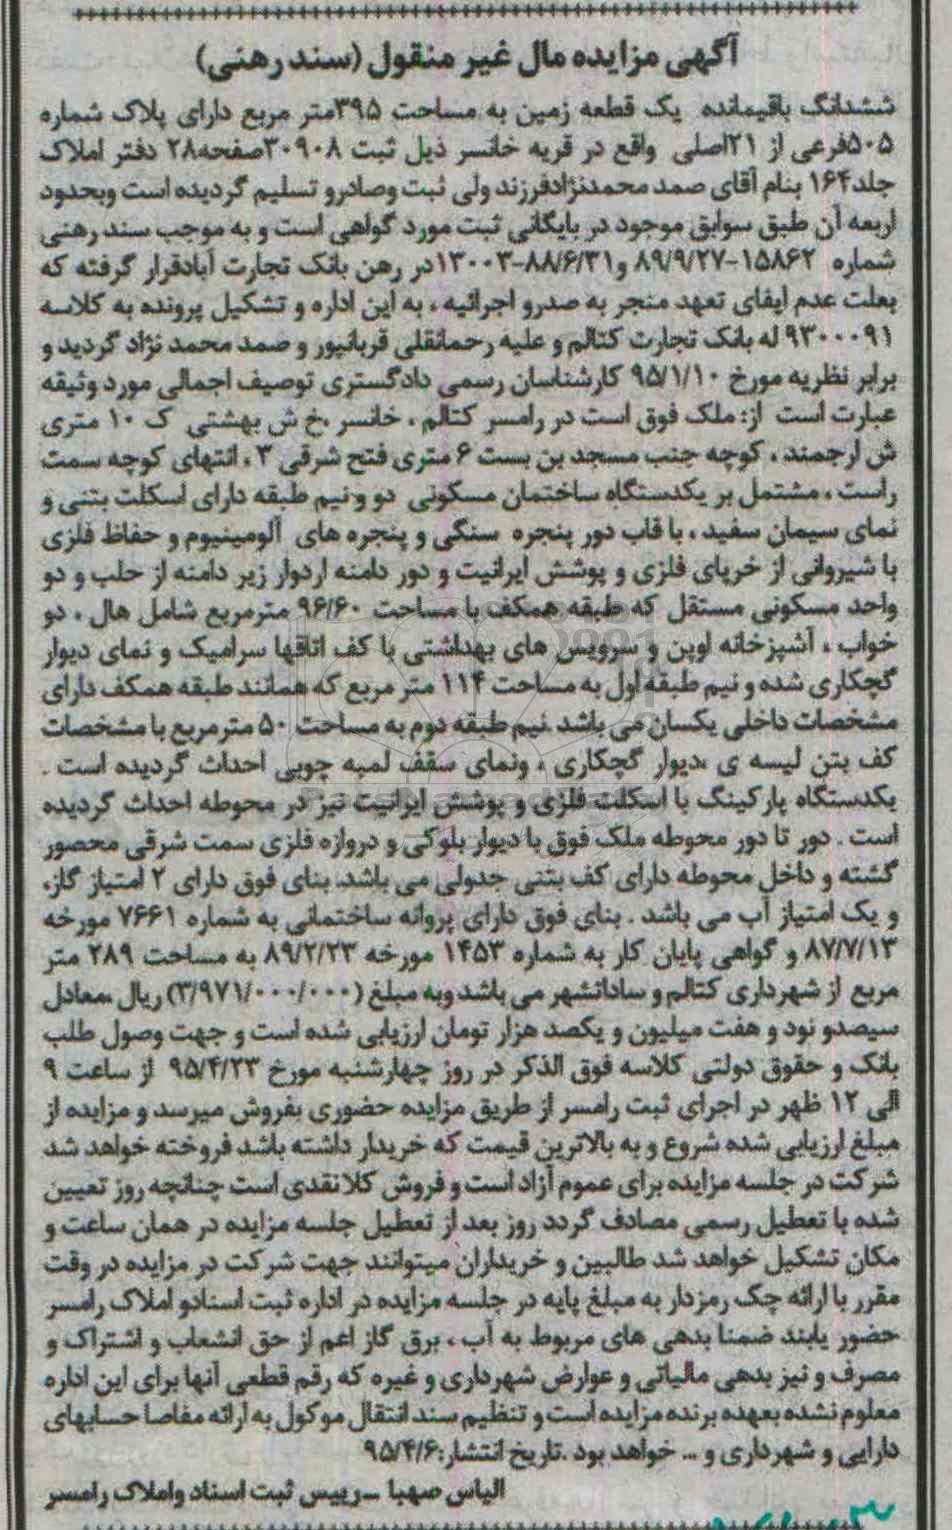 آگهی مزایده مال غیر منقول (سند رهنی)
ششدانگ باقیمانده یک قطعه زمین به مساحت ۳۹۵متر مربع دارای پلاک شماره
۵۰۵فرعی از ۲۱اصلی واقع در قریه خانسر ذیل ثبت ۳۰۹۰۸صفحه۲۸ دفتر املاک
جلد۱۶۴ بنام آقای صمد محمدنژادفرزند ولی ثبت وصادرو تسلیم گردیده است وبحدود
اربعه آن طبق سوابق موجود در بایگانی ثبت مورد گواهی است و به موجب سند رهنی
شماره ۱۵۸۶۲-۸۹/۹/۲۷ و۸۸/۶/۳۱-۱۳۰۰۳در رهن بانک تجارت آبادقرار گرفته که
بعلت عدم ایفای تعهد منجر به صدرو اجرائیه ، به این اداره و تشکیل پرونده به کلاسه
۹۳۰۰۰۹۱ له بانک تجارت کتالم و علیه رحمانقلی قربانپور و صمد محمد نژاد گردید و
برابر نظریه مورخ ۹۵/۱/۱۰ کارشناسان رسمی دادگستری توصیف اجمالی مورد وثیقه
عبارت است از: ملک فوق است در رامسر کتالم ، خانسر ،خ ش بهشتی ک ۱۰ متری
ش ارجمند ، کوچه جنب مسجد بن بست ۶ متری فتح شرقی ۳ ، انتهای کوچه سمت
راست ، مشتمل بر یکدستگاه ساختمان مسکونی دو و نیم طبقه دارای اسکلت بتنی و
نمای سیمان سفید ، با قاب دور پنجره سنگی و پنجره های آلومینیوم و حفاظ فلزی
با شیروانی از خرپای فلزی و پوشش ایرانیت و دور دامنه اردوار زیر دامنه از حلب و دو
واحد مسکونی مستقل که طبقه همکف با مساحت ۹۶/۶۰ مترمربع شامل هال ، دو
خواب ، آشپزخانه اوپن و سرویس های بهداشتی با کف اتاقها سرامیک و نمای دیوار
گچکاری شده و نیم طبقه اول به مساحت ۱۱۴ متر مربع که همانند طبقه همکف دارای
مشخصات داخلی یکسان می باشد .نیم طبقه دوم به مساحت ۵۰ مترمربع با مشخصات
کف بتن لیسه ی ،دیوار گچکاری ، ونمای سقف لمبه چوبی احداث گردیده است .
یکدستگاه پارکینگ با اسکلت فلزی و پوشش ایرانیت نیز در محوطه احداث گردیده
است . دور تا دور محوطه ملک فوق با دیوار بلوکی و دروازه فلزی سمت شرقی محصور
گشته و داخل محوطه دارای کف بتنی جدولی می باشد. بنای فوق دارای ۲ امتیاز گاز،
و یک امتیاز آب می باشد . بنای فوق دارای پروانه ساختمانی به شماره ۷۶۶۱ مورخه
۸۷/۷/۱۳ و گواهی پایان کار به شماره ۱۴۵۳ مورخه ۸۹/۲/۲۳ به مساحت ۲۸۹ متر
مربع از شهرداری کتالم و ساداتشهر می باشد وبه مبلغ (۳/۹۷۱/۰۰۰/۰۰۰) ریال ،معادل
سیصدو نود و هفت میلیون و یکصد هزار تومان ارزیابی شده است و جهت وصول طلب
بانک و حقوق دولتی کلاسه فوق الذکر در روز چهارشنبه مورخ ۹۵/۴/۲۳ از ساعت ۹
الی ۱۲ ظهر در اجرای ثبت رامسر از طریق مزایده حضوری بفروش میرسد و مزایده از
مبلغ ارزیابی شده شروع و به بالاترین قیمت که خریدار داشته باشد فروخته خواهد شد
شرکت در جلسه مزایده برای عموم آزاد است و فروش کلا نقدی است چنانچه روز تعیین
شده با تعطیل رسمی مصادف گردد روز بعد از تعطیل جلسه مزایده در همان ساعت و
مکان تشکیل خواهد شد طالبین و خریداران میتوانند جهت شرکت در مزایده در وقت
مقرر با ارائه چک رمزدار به مبلغ پایه در جلسه مزایده در اداره ثبت اسنادو املاک رامسر
حضور یابند ضمنا بدهی های مربوط به آب ، برق گاز اعم از حق انشعاب و اشتراک و
مصرف و نیز بدهی مالیاتی و عوارض شهرداری و غیره که رقم قطعی آنها برای این اداره
معلوم نشده بعهده برنده مزایده است و تنظیم سند انتقال موکول به ارائه مفاصا حسابهای
دارایی و شهرداری و ... خواهد بود .تاریخ انتشار:۹۵/۴/۶
الیاس صهبا ـ رییس ثبت اسناد واملاک رامسر